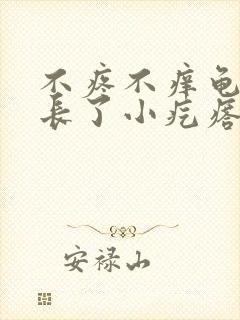 不疼不痒龟
长了小疙瘩
安禄山